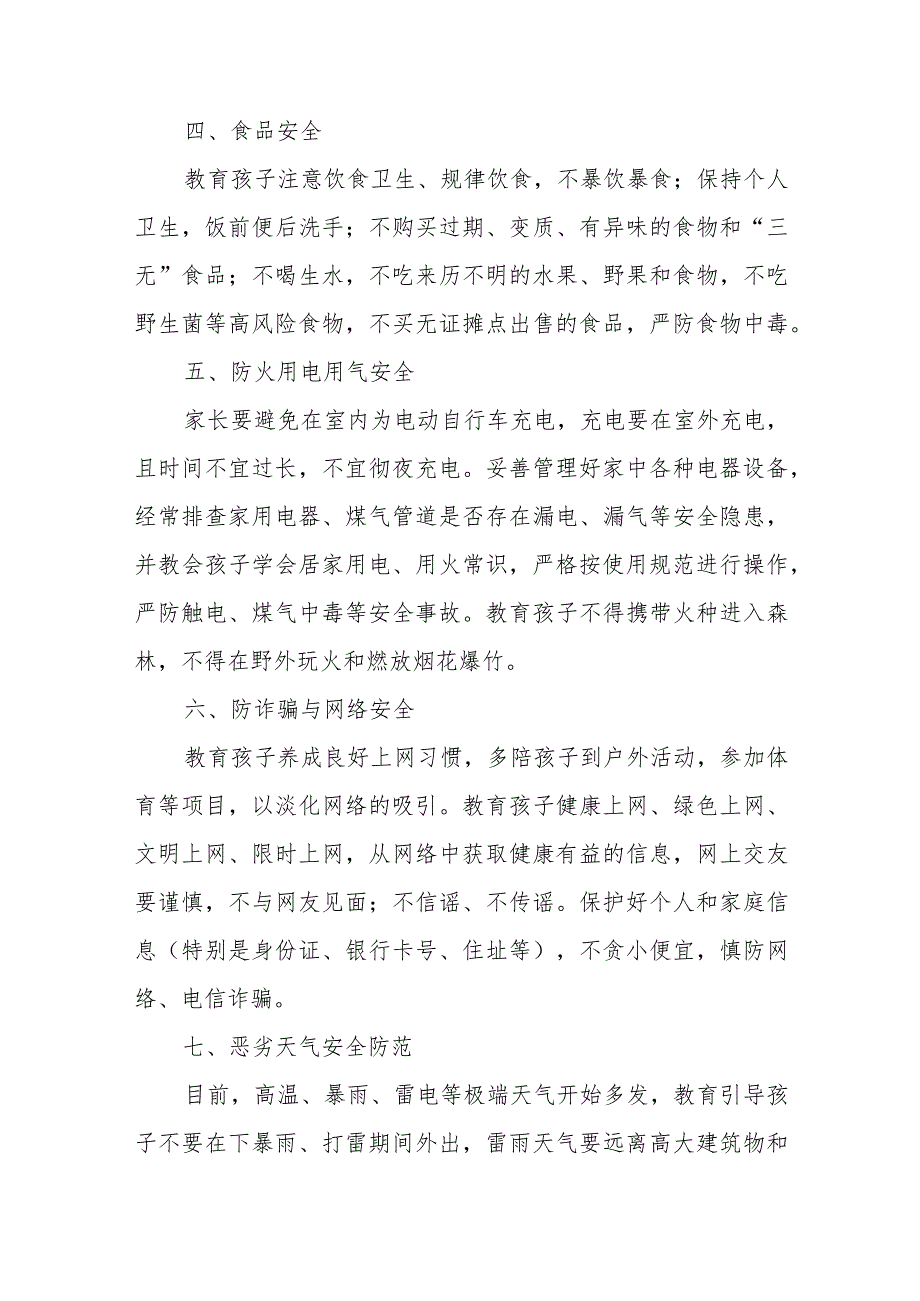 四、食品安全
教育孩子注意饮食卫生、规律饮食，不暴饮暴食；保持个人
卫生，饭前便后洗手；不购买过期、变质、有异味的食物和“三
无”食品；不喝生水，不吃来历不明的水果、野果和食物，不吃
野生菌等高风险食物，不买无证摊点出售的食品，严防食物中毒。
五、防火用电用气安全
家长要避免在室内为电动自行车充电，充电要在室外充电，
且时间不宜过长，不宜彻夜充电。妥善管理好家中各种电器设备，
经常排查家用电器、煤气管道是否存在漏电、漏气等安全隐患，
并教会孩子学会居家用电、用火常识，严格按使用规范进行操作，
严防触电、煤气中毒等安全事故。教育孩子不得携带火种进入森
林，不得在野外玩火和燃放烟花爆竹。
六、防诈骗与网络安全
教育孩子养成良好上网习惯，多陪孩子到户外活动，参加体
育等项目，以淡化网络的吸引。教育孩子健康上网、绿色上网、
文明上网、限时上网，从网络中获取健康有益的信息，网上交友
要谨慎，不与网友见面；不信谣、不传谣。保护好个人和家庭信
息（特别是身份证、银行卡号、住址等），不贪小便宜，慎防网
络、电信诈骗。
七、恶劣天气安全防范
目前，高温、暴雨、雷电等极端天气开始多发，教育引导孩
子不要在下暴雨、打雷期间外出，雷雨天气要远离高大建筑物和